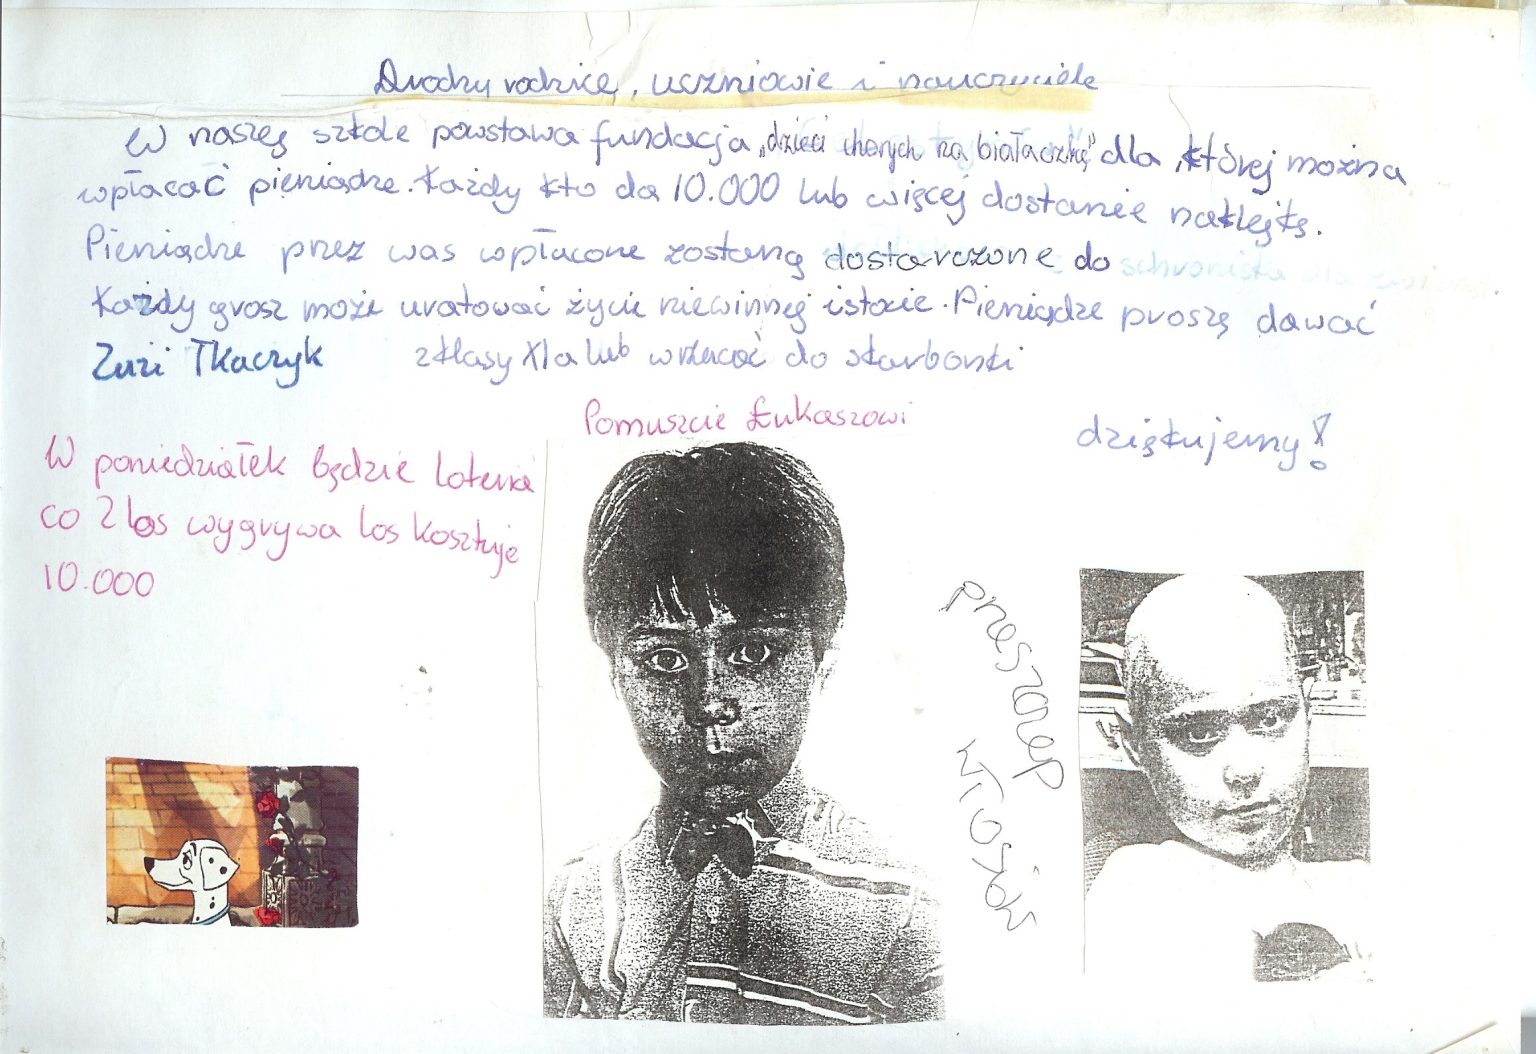 Drodzy rodzice, uczniowie i nauczyciele
W naszej szkole powstawa fundacja „dzieci chorych na białaczkę" dla której można
wpłacać pieniądze. Każdy kto da 10.000 lub więcej dostanie naklejkę.
Pieniądze przez was wpłacone zostaną dostarczone do schroniska dla
Każdy grosz może uratować życie niewinnej istocie. Pieniądze proszę dawać
Zuzi Tkaczyk z klasy XIa lub wrzucać do skarbonki
dziękujemy!
Pomuszcie Łukaszowi
W poniedziałek będzie loteria
co 2 los wygrywa los kosztuje
10.000
przeszczep
włosów